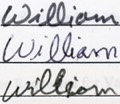 William
William
William